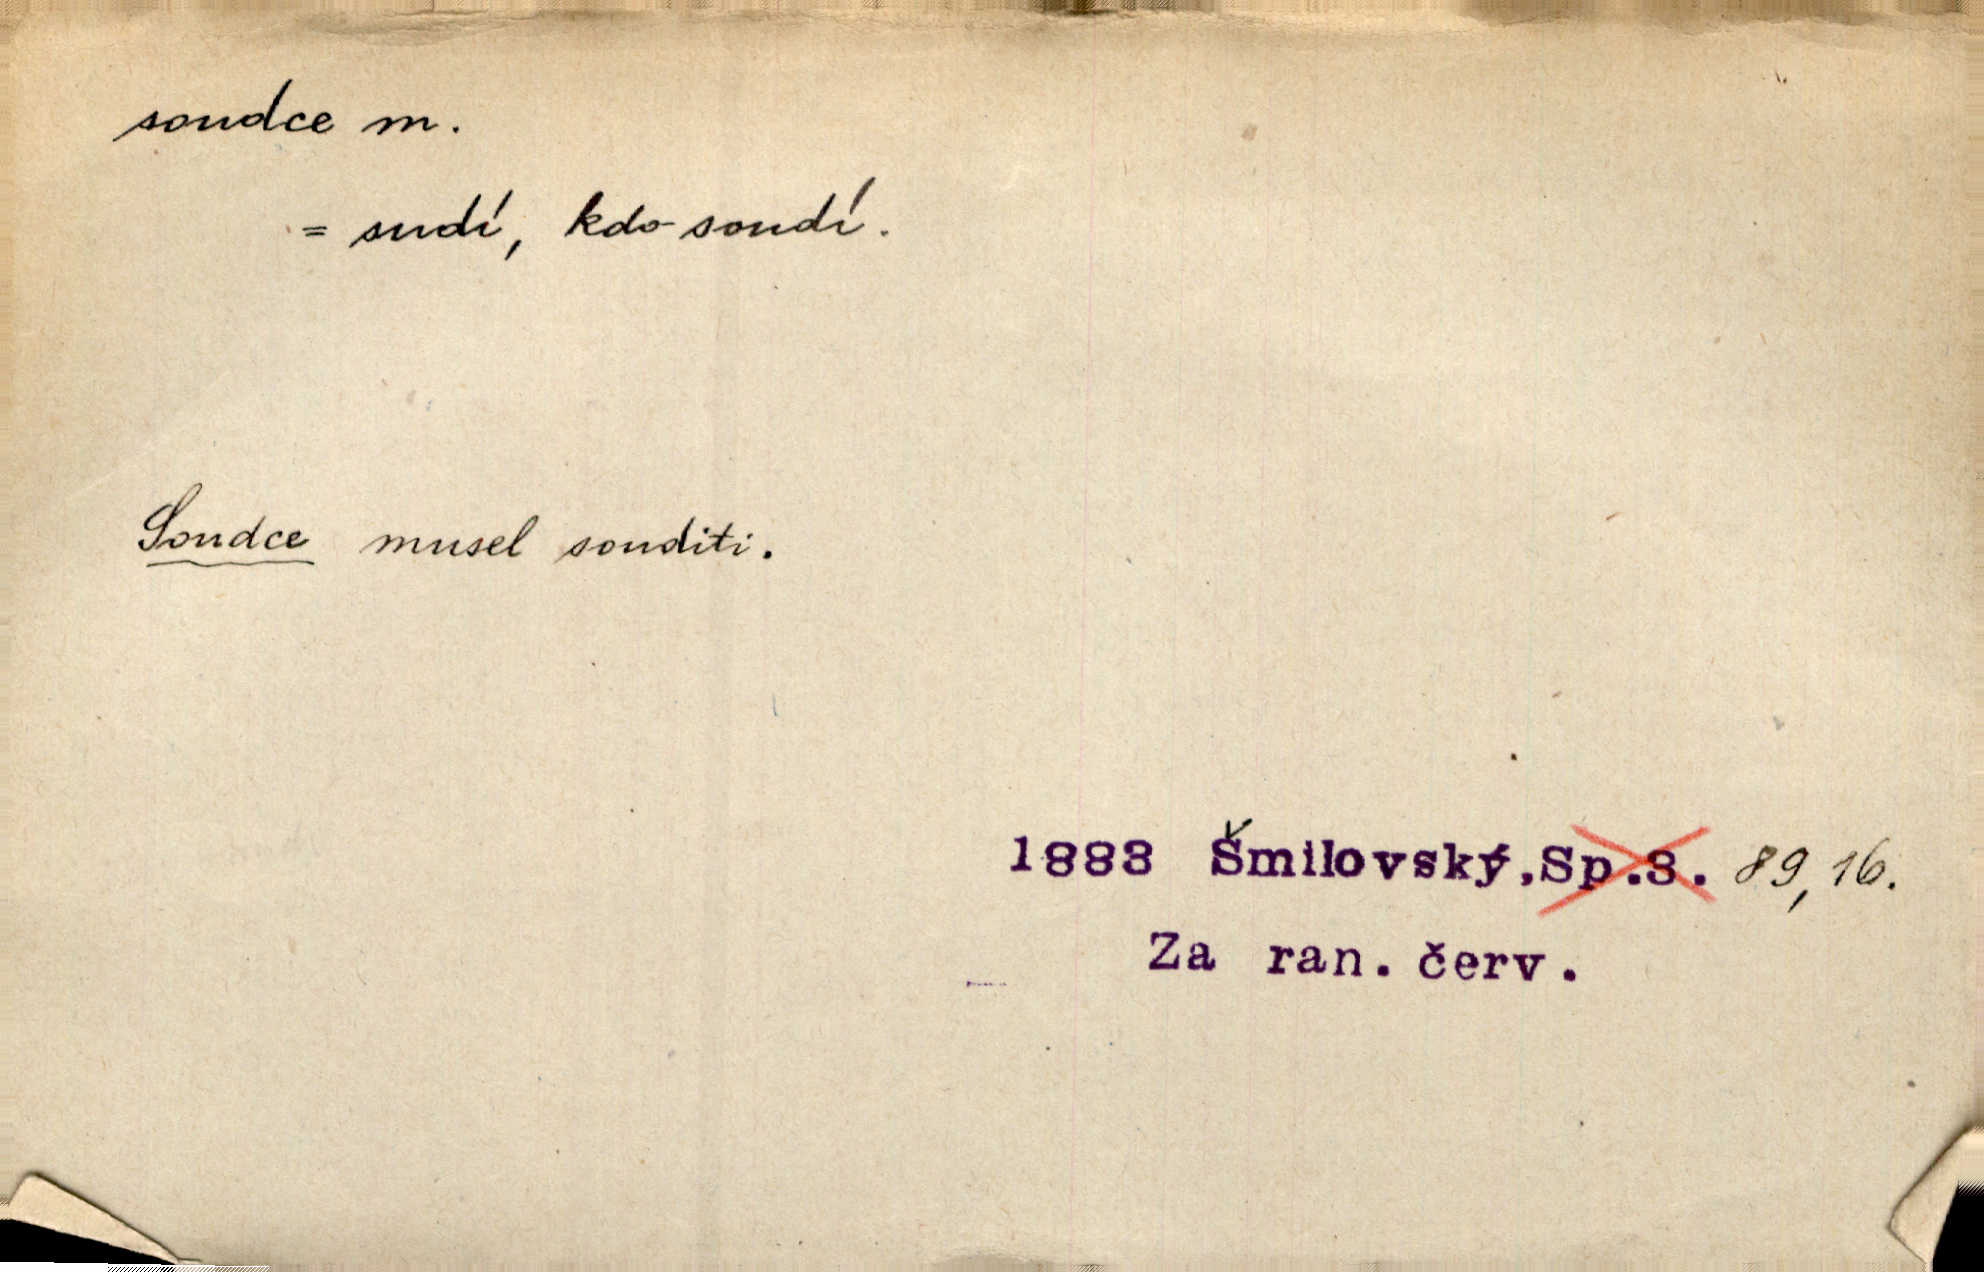 soudce m.
= sudí, kdo soudí.
Soudce musel souditi.
1883 Šmilovský,Sp.3. 89,16.
Za ran. červ.